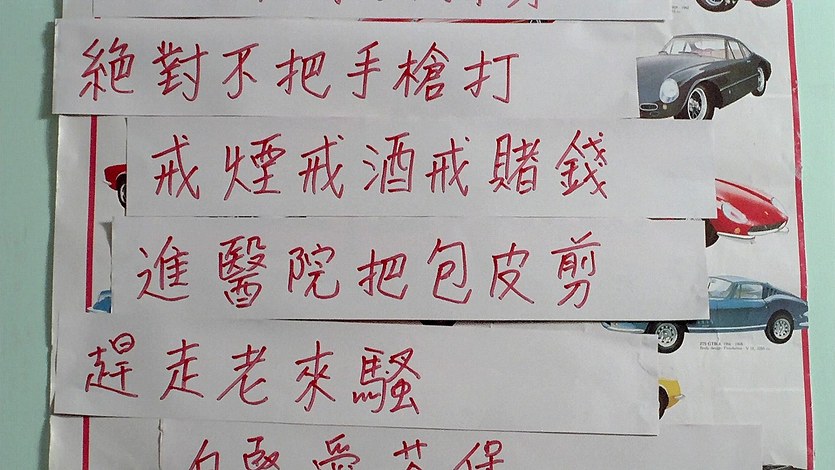 絕對不把手槍打
戒煙戒酒戒賭錢
進醫院把包皮剪
趕走老來騷